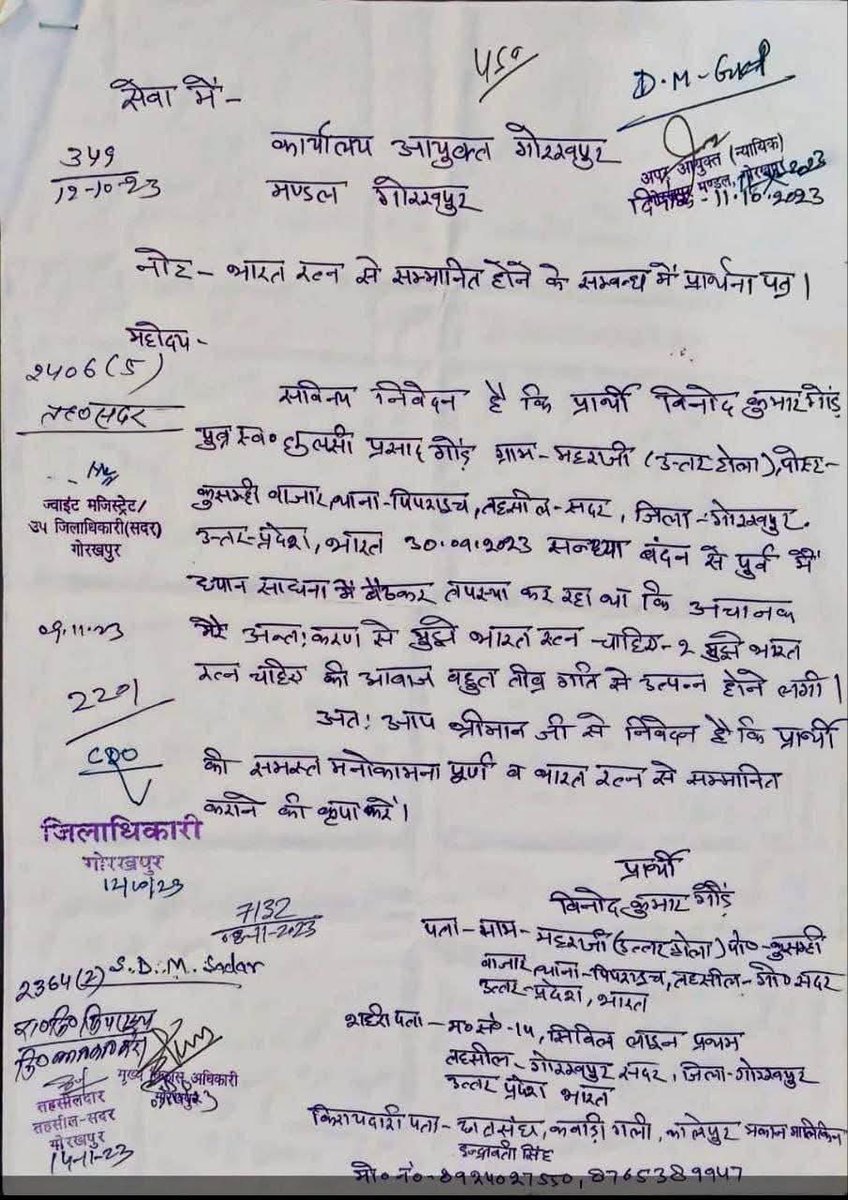 450
D.M-Gkp
सेवा में-
349
12-10-23
कार्यालय आयुक्त गोरखपुर
मण्डल गोरखपुर
अपर आयुक्त (न्यायिक)
मण्डल, गोरखपुर
दिनांक-11.10.2023
नोट- भारत रत्न से सम्मानित होने के सम्बन्ध में प्रार्थना पत्र।
महोदय-
2406(5)
तह०सदर
ज्वाईट मजिस्ट्रेट/
उप जिलाधिकारी(सदर)
गोरखपुर
सविनय निवेदन है कि प्रार्थी विनोद कुमार गौंड़
पुत्र स्व० तुलसी प्रसाद गौंड़ ग्राम-महराजी (उत्तर टोला), पोस्ट-
कुसम्ही बाजार, थाना-पिपराइच, तहसील-सदर, जिला-गोरखपुर.
उत्तर-प्रदेश, भारत 30.09.2023 सन्ध्या बंदन से पुर्व में
ध्यान साधना में बैठकर तपस्या कर रहा था कि अचानक
मेरे अन्त:करण से मुझे भारत रत्न चाहिए-२ मुझे भारत
रत्न चाहिए की आवाज बहुत तीव्र गति से उत्पन्न होने लगी।
अत: आप श्रीमान जी से निवेदन है कि प्रार्थी
की समस्त मनोकामना पूर्ण व भारत रत्न से सम्मानित
कराने की कृपा करें।
09.11.23
2201
CDO
जिलाधिकारी
गोरखपुर
7132
08-11-2023
2364(2) S.D.M. Sadar
मुख्य विकास अधिकारी
तहसीलदार
तहसील-सदर
गोरखपुर
14-11-23
प्रार्थी
विनोद कुमार गौंड़
पता-ग्राम-महराजी (उत्तर टोला) पो०-कुसम्ही
बाजार, थाना-पिपराइच, तहसील-गो० सदर
उत्तर-प्रदेश, भारत
शहरी पता- म० सं०-14, सिविल लाइन प्रथम
तहसील-गोरखपुर सदर, जिला-गोरखपुर
उत्तर प्रदेश भारत
किरायदारी पता- कबाड़ी गली, मकान मालिकिन
इन्द्रावती सिंह
मो० नं०-8924027550, 8765389947